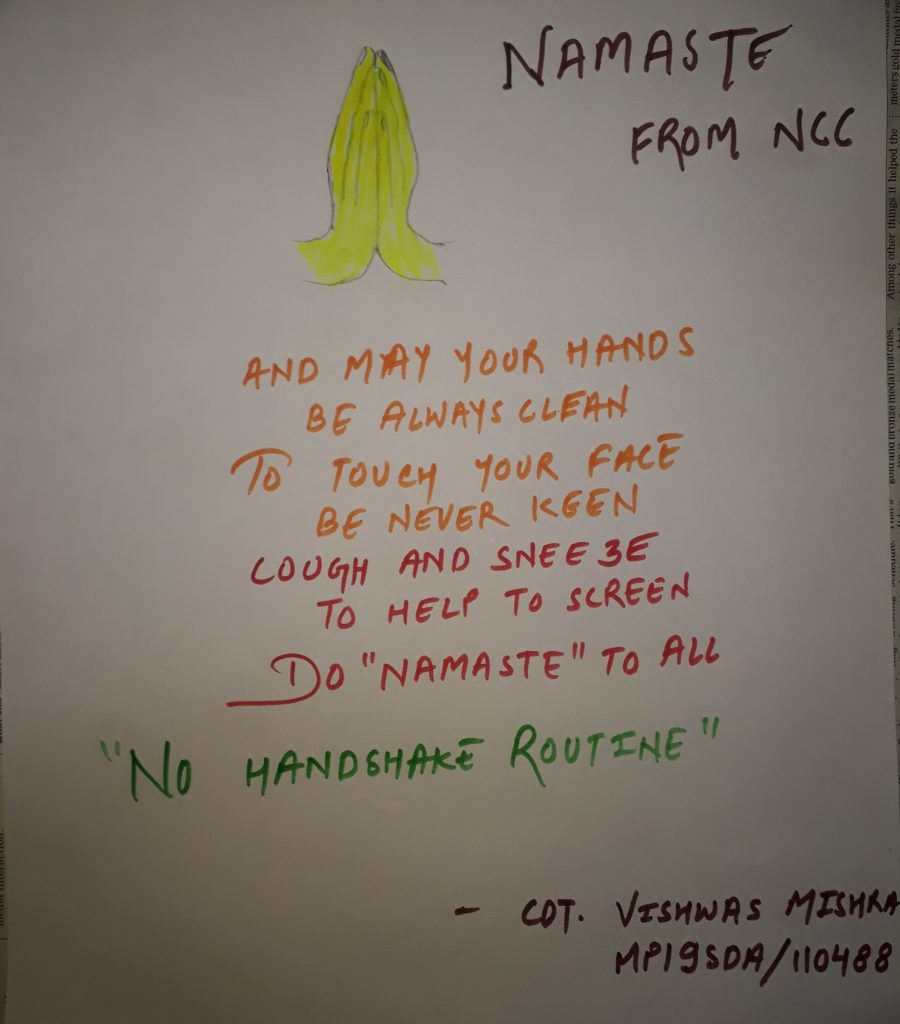 NAMASTE
FROM NCC
AND MAY YOUR HANDS
BE ALWAYS CLEAN
TO TOUCH YOUR FACE
BE NEVER KEEN
COUGH AND SNEEZE
TO HELP TO SCREEN
DO "NAMASTE" TO ALL
"NO HANDSHAKE ROUTINE"
- CDT. VISHWAS MISHRA
MP19SDA/110488
meters gold medal fo
Among other things it helped the
gold and bronze medal matches.
media interaction.